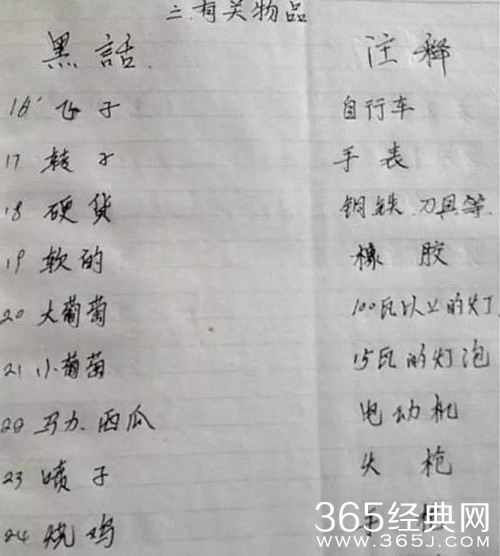 二.有关物品
黑話. 注释
16' 飞子 自行车
17 转子 手表
18 硬货 钢铁.刀具等.
19 软的 橡胶
20 大葡萄 100瓦以上的灯
21 小葡萄 15瓦的灯泡
22 马力.西瓜 电动机
23 喷子 火枪
24 烧鸡 手
365经典网
WWW.365J.COM